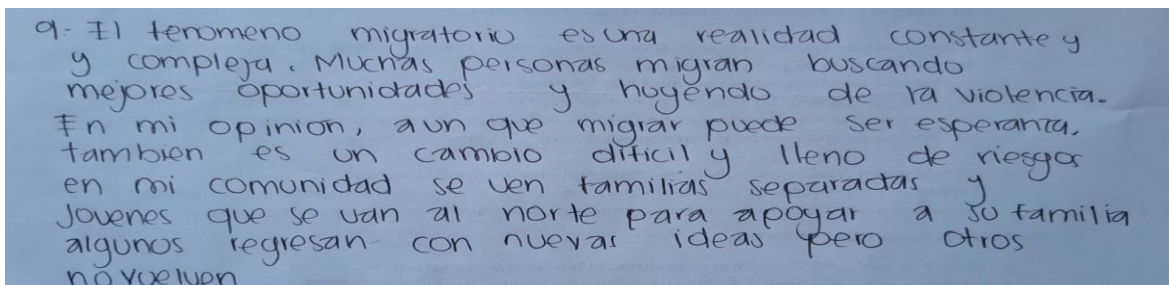 9.- El fenomeno migratorio es una realidad constante y
y compleja. Muchas personas migran buscando
mejores oportunidades y huyendo de la violencia.
En mi opinion, aun que migrar puede ser esperanza,
tambien es un cambio dificil y lleno de riesgos
en mi comunidad se ven familias separadas y
Jovenes que se van al norte para apoyar a su familia
algunos regresan con nuevas ideas pero otros
no vuelven